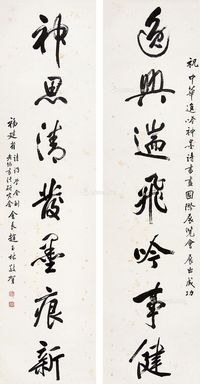 祝中華逸吟神墨詩書畫國際展覽會展出成功
逸興遄飛吟事健
神思清發墨痕新
福建省詩詞學會副會長趙玉林敬賀